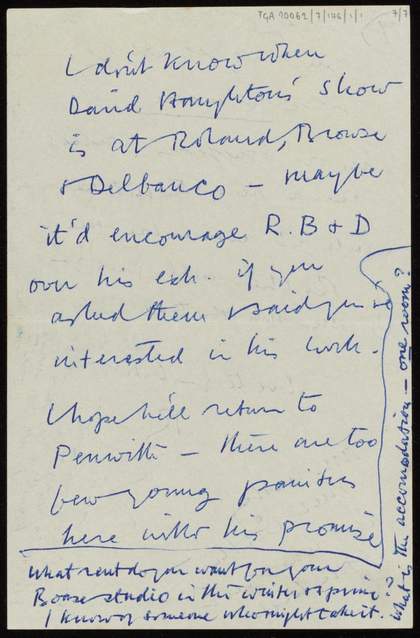 TGA 20062/7/146/1/1 7/7
I don't know when
David Haughton's show
is at Roland, Browse
& Delbanco – maybe
it'd encourage R.B & D
over his exh. if you
asked them & said you're
interested in his work.
I hope he'll return to
Penwith – there are too
few young painters
here with his promise
What rent do you want for your
Boase studio in the winter & spring?
I know of someone who might take it.
What is the accomodation – one room?